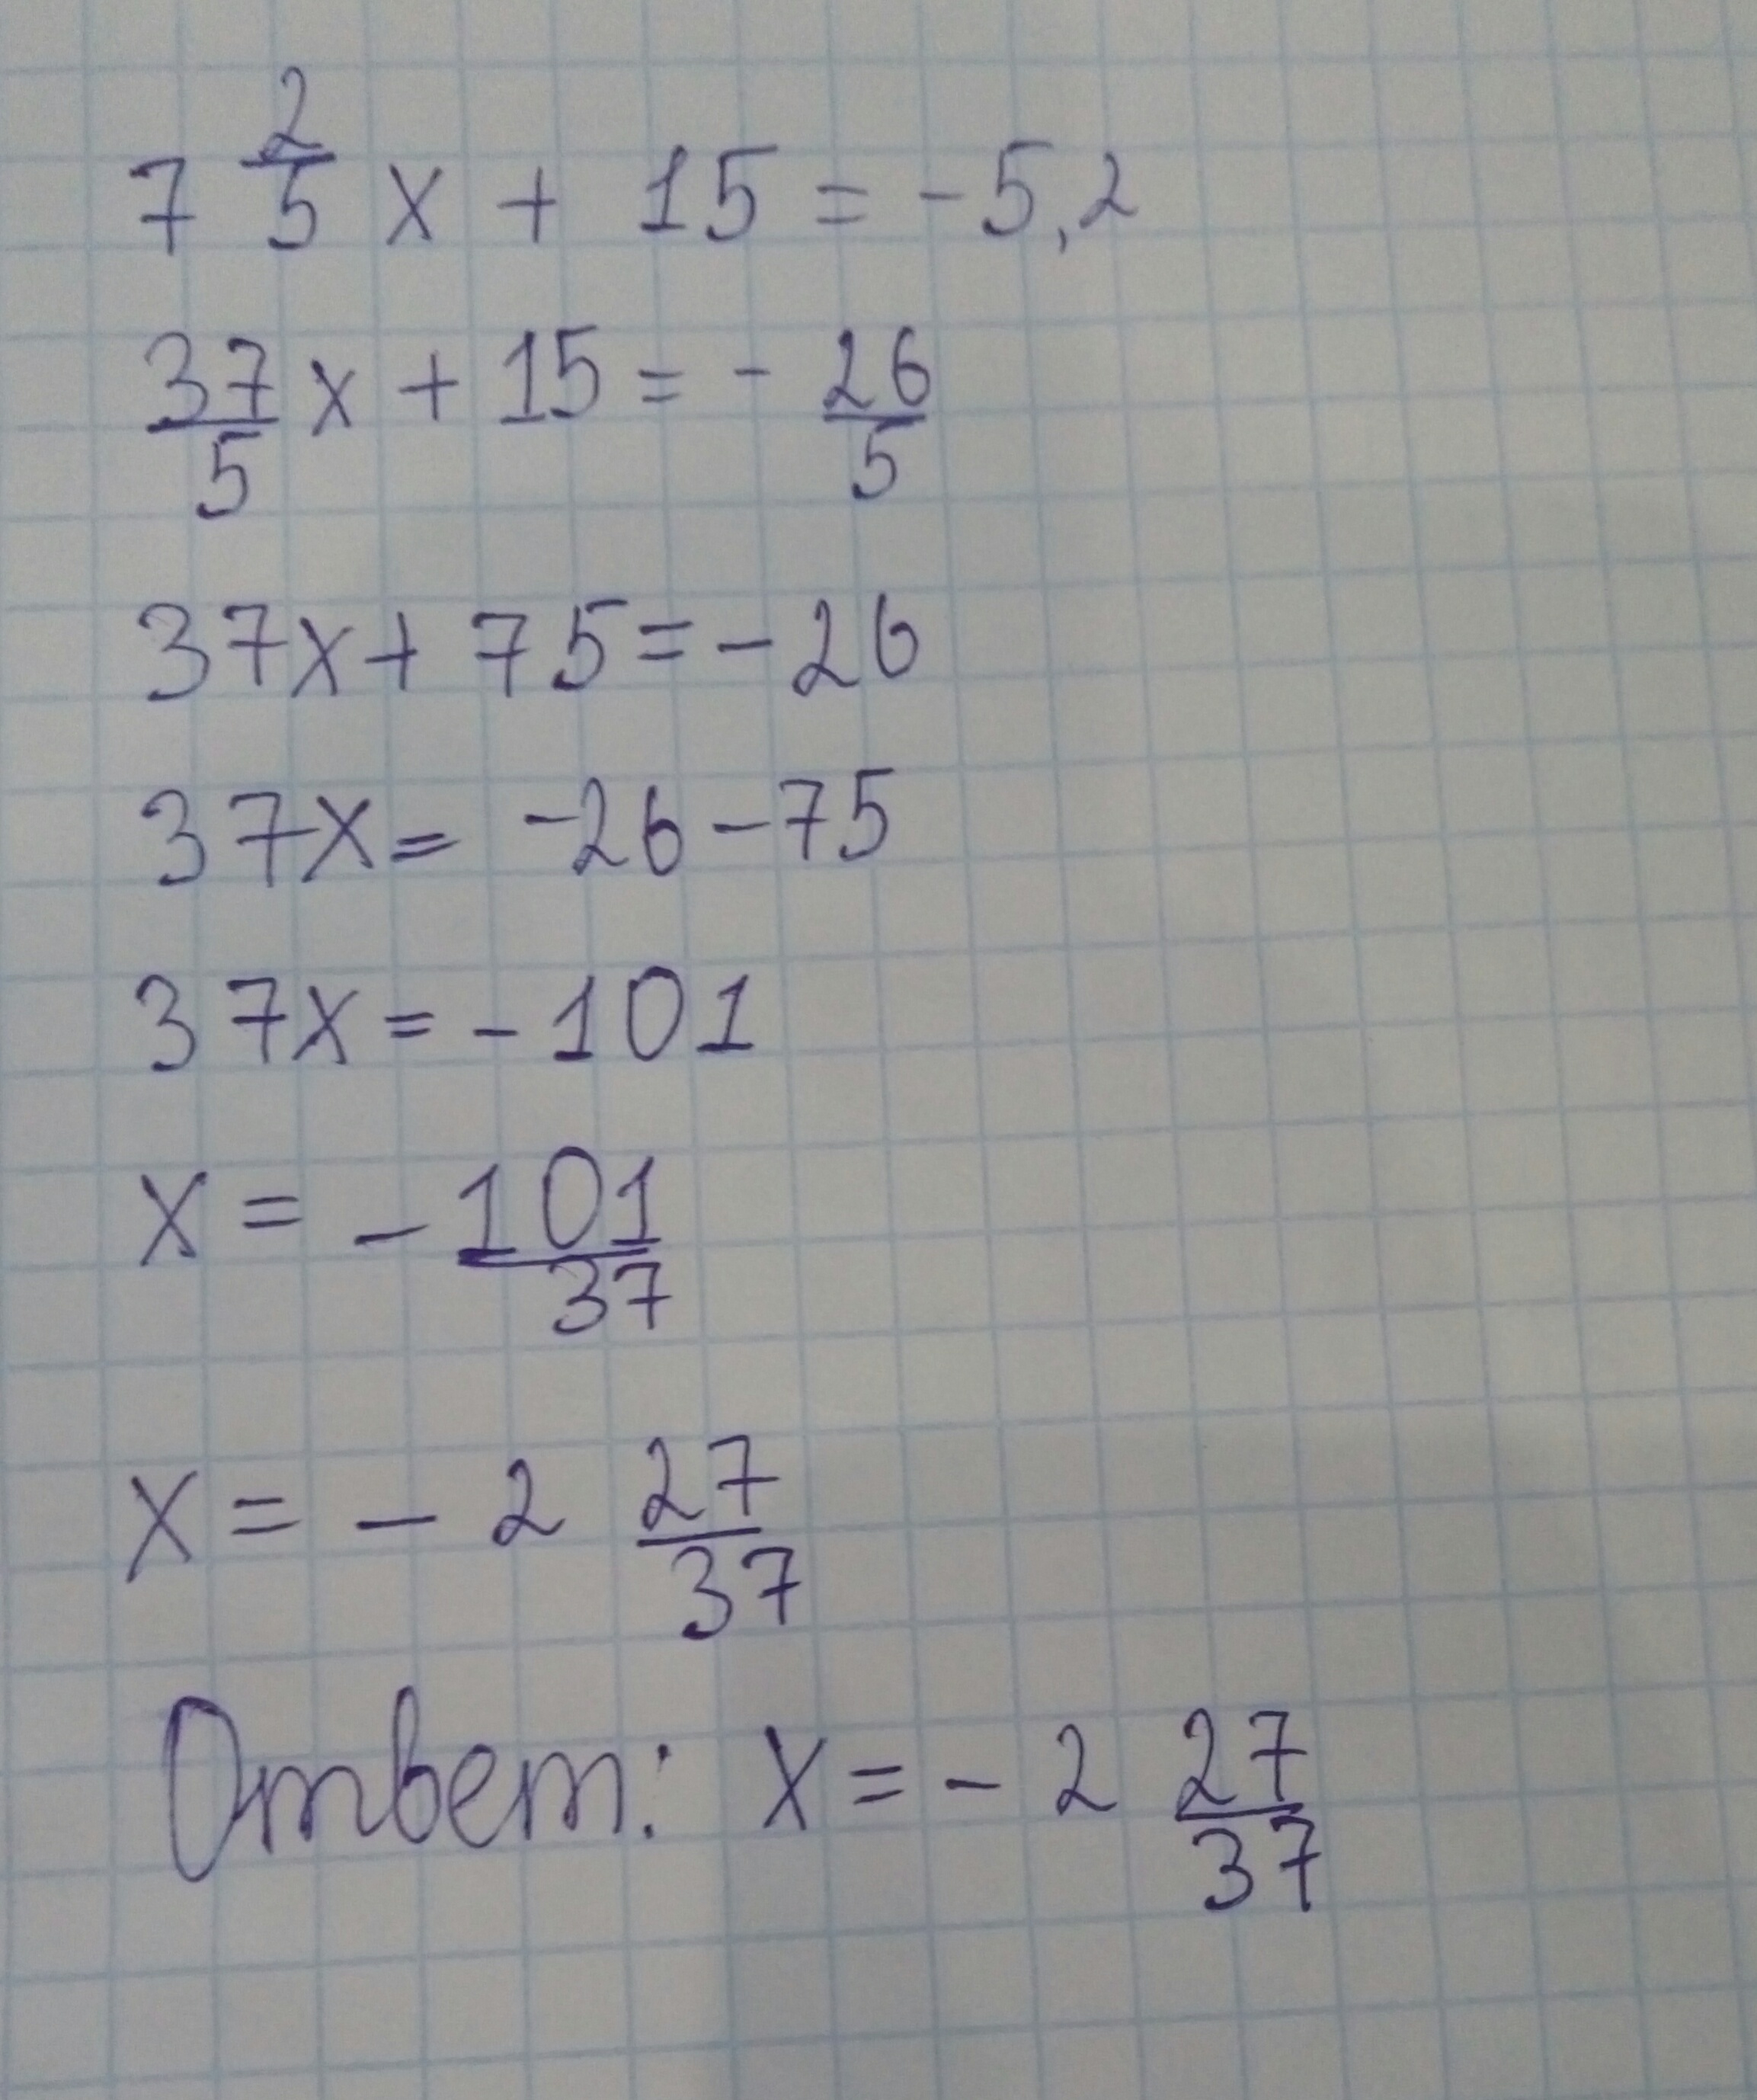 7 2/5 x + 15 = -5,2
37/5 x + 15 = - 26/5
37x + 75 = -26
37x = -26 - 75
37x = -101
x = - 101/37
x = - 2 27/37
Ответ: x = - 2 27/37